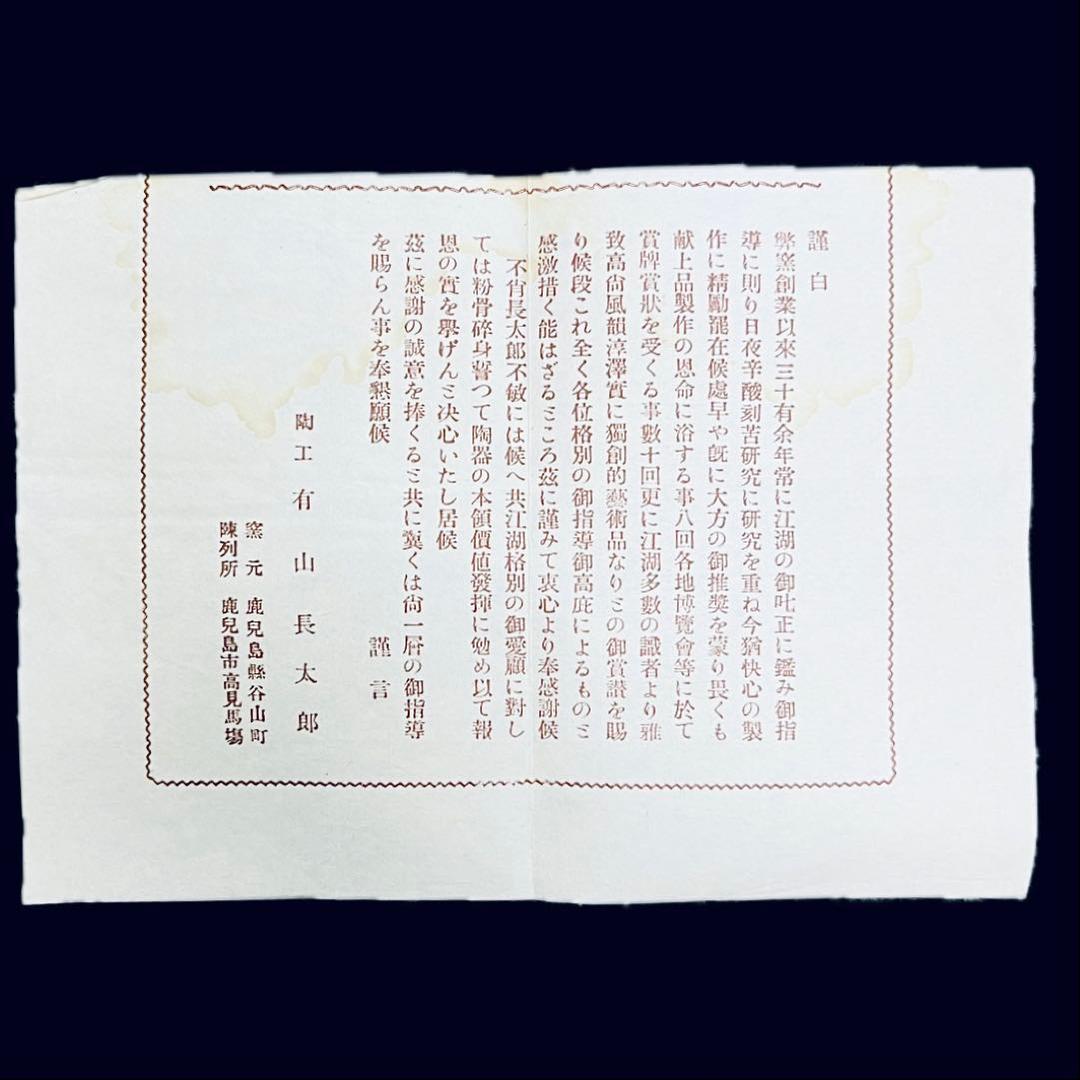 謹白
弊窯創業以來三十有余年常に江湖の御叱正に鑑み御指
導に則り日夜辛酸刻苦研究に研究を重ね今猶快心の製
作に精勵罷在候處早や旣に大方の御推奬を蒙り畏くも
献上品製作の恩命に浴する事八回各地博覽會等に於て
賞牌賞狀を受くる事數十回更に江湖多數の識者より雅
致高尙風韻淳澤實に獨創的藝術品なりとの御賞讃を賜
り候段これ全く各位格別の御指導御高庇によるものと
感激措く能はざるところ茲に謹みて衷心より奉感謝候
不肖長太郎不敏には候へ共江湖格別の御愛顧に對し
ては粉骨碎身誓つて陶器の本領價値發揮に勉め以て報
恩の實を擧げんと決心いたし居候
茲に感謝の誠意を捧くると共に冀くは尙一層の御指導
を賜らん事を奉懇願候
謹言
陶工 有山長太郎
窯元 鹿兒島縣谷山町
陳列所 鹿兒島市高見馬塲